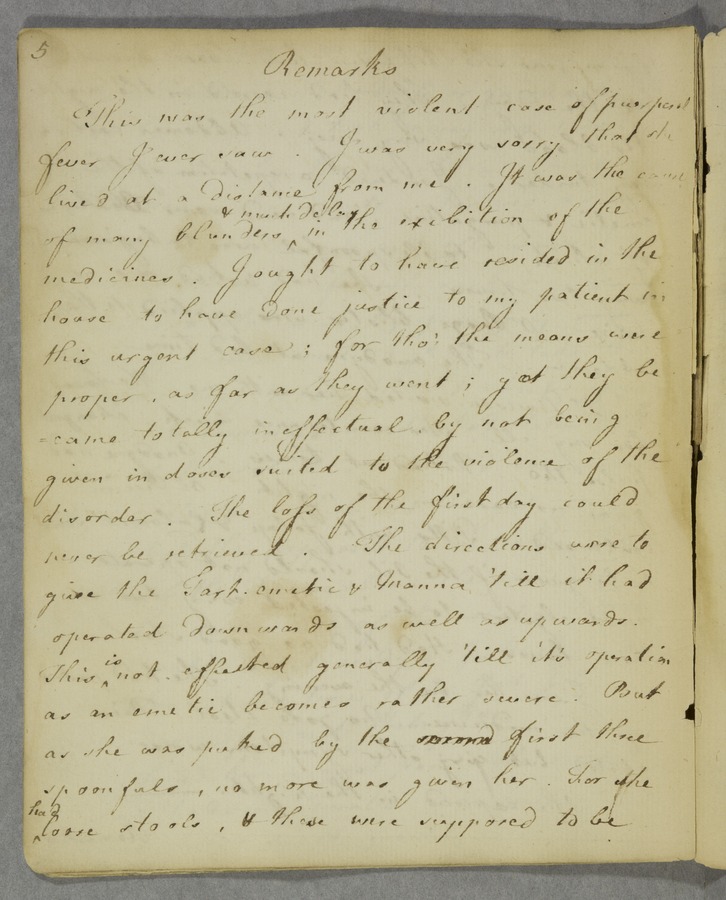 5
Remarks
This was the most violent case of puerperal
fever I ever saw. I was very sorry that she
lived at a distance from me. It was the cause
& much delay
of many blunders ‸ in the exibition of the
medicines. I ought to have resided in the
house to have done justice to my patient in
this urgent case; for tho' the means were
proper, as far as they went; yet they be
=came totally ineffectual by not being
given in doses suited to the violence of the
disorder. The loss of the first day could
never be retrieved. The directions were to
give the Tart. emetic & Manna 'till it had
operated downwards as well as upwards.
is
This ‸ not effected generally 'till it's operation
as an emetic becomes rather severe. But
as she was puked by the first three
spoonfuls, no more was given her. For she
had
‸ loose stools, & these were supposed to be